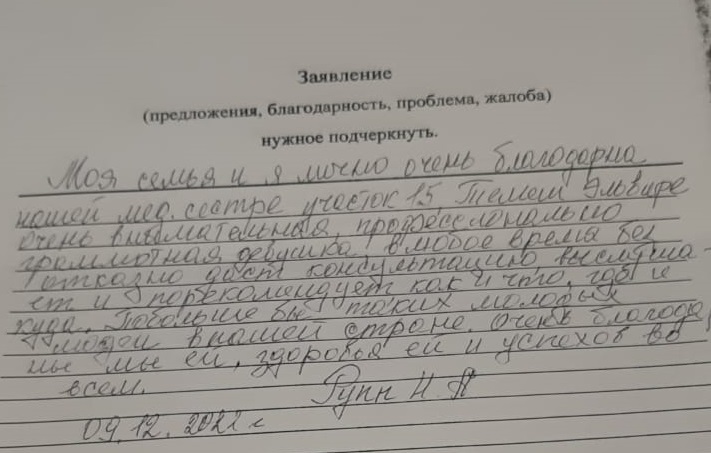 Заявление
(предложения, благодарность, проблема, жалоба)
нужное подчеркнуть.
Моя семья и я лично очень благодарна
нашей мед. сестре участок 15, Темеш Эльвире
очень внимательная, профессионально
граммотная девушка, в любое время без
отказно даст консультацию, выслуша-
ет и порекомендует как и что, где и
куда. Побольше бы таких молодых
людей в нашей стране. Очень благодар
ны мы ей, здоровья ей и успехов во
всем. Рупп Н. П
09.12.2022 г